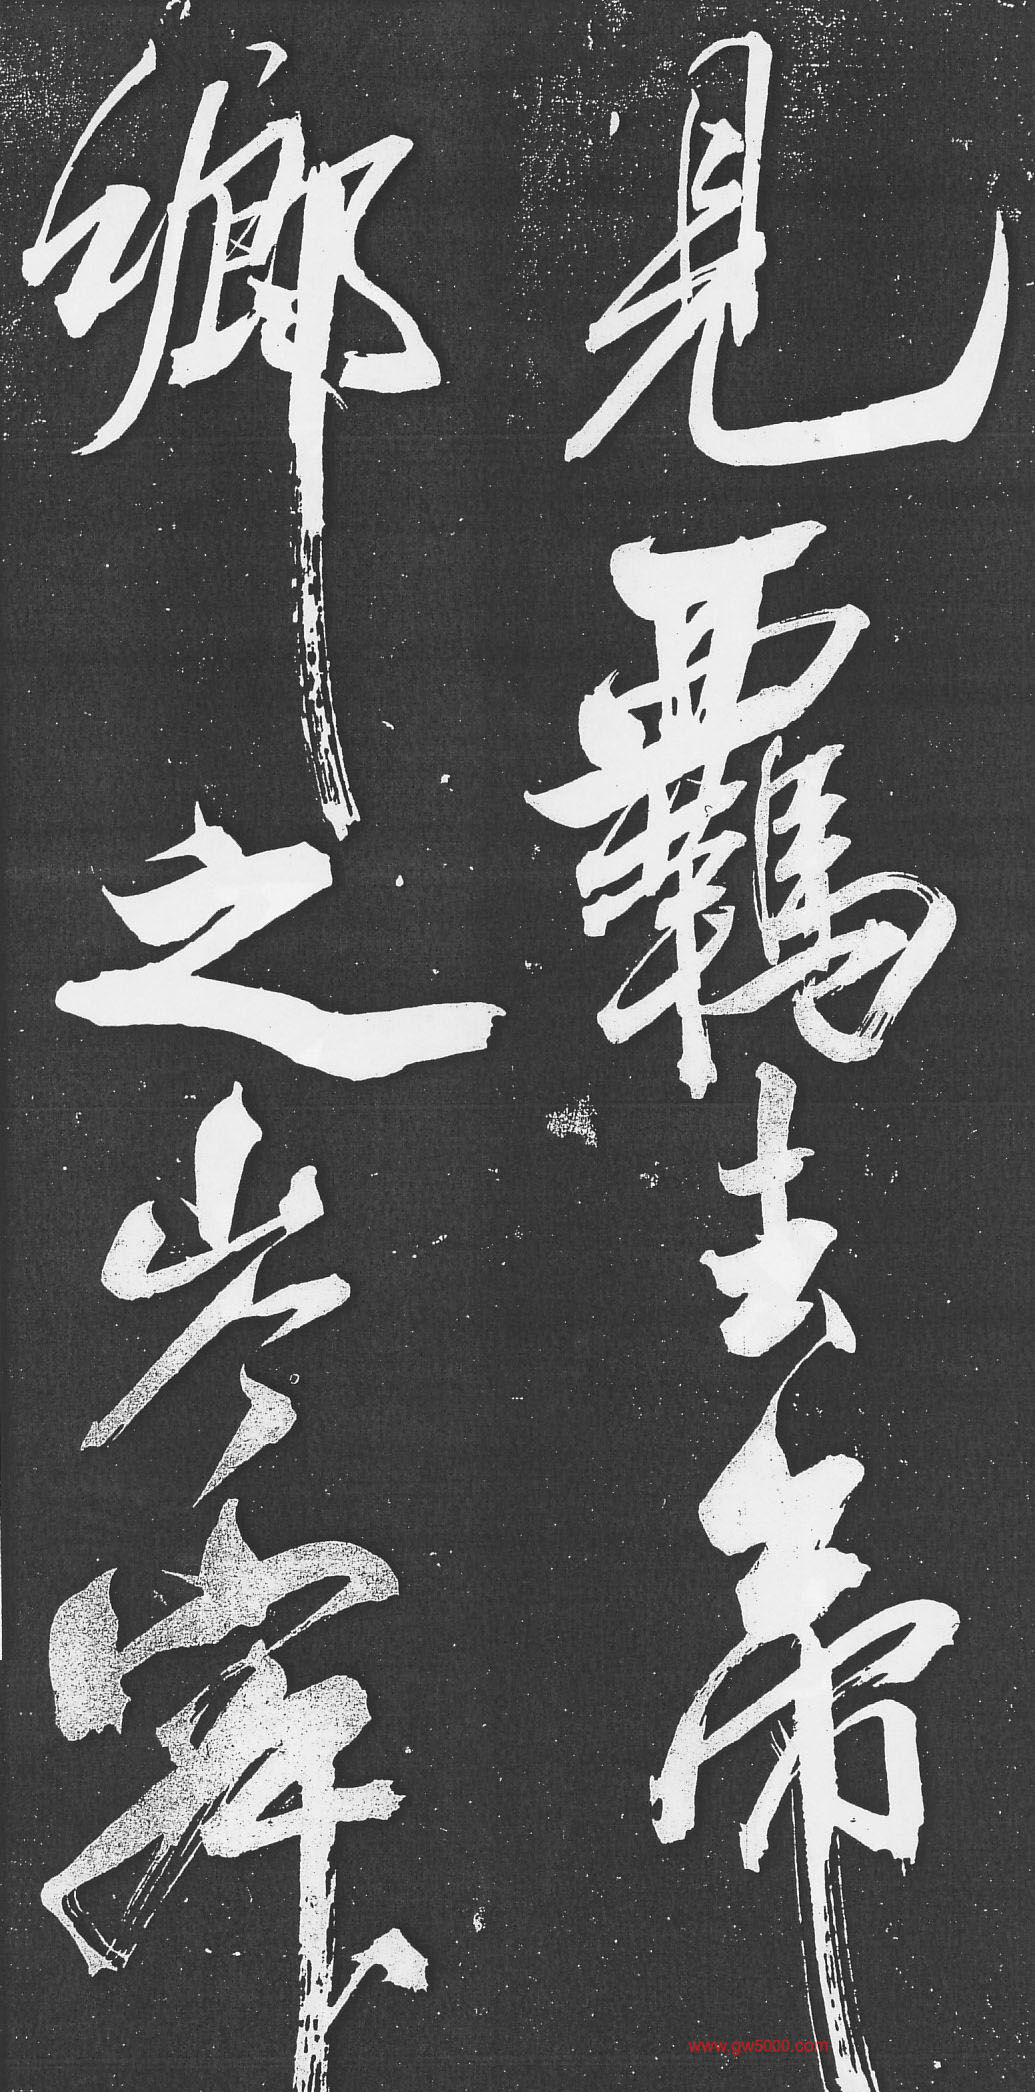 見羈去帝
鄉之岑寂
www.gw5000.com